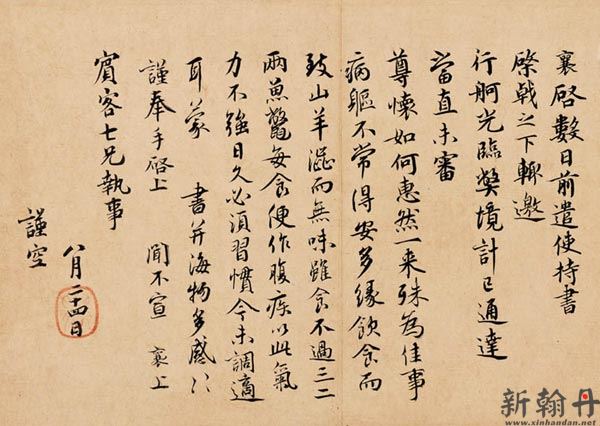 襄啓數日前遣使持書
棨戟之下輙邀
行舸光臨獘境計已通達
當直未審
尊懷如何惠然一来殊為佳事
病軀不常得安多緣飲食而
致山羊澀而無味雖食不過三二
兩魚鼈每食便作腹疾以此氣
力不強日久必須習慣今未調適
耳蒙 書并海物多感〻
謹奉手啓上 聞不宣 襄上
賓客七兄執事
八月二十四日
謹空
新翰丹
www.xinhandan.net